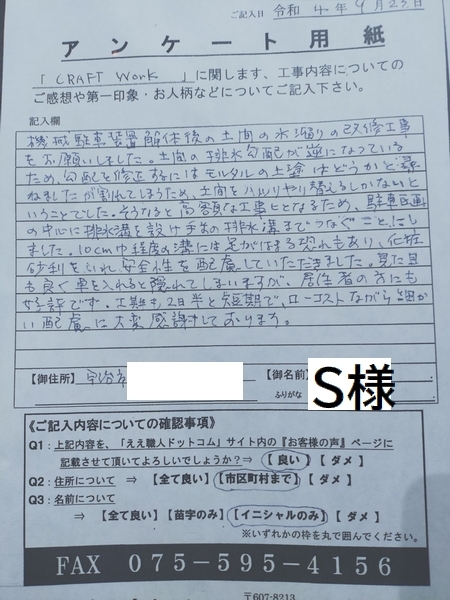 ご記入日 令和 4 年 9 月 23 日
アンケート用紙
「 CRAFT Work 」に関します、工事内容についての
ご感想や第一印象・お人柄などについてご記入下さい。
記入欄
機械駐車装置解体後の土間の水溜りの改修工事
をお願いしました。土間の排水勾配が逆になっている
ため、勾配を修正するにはモルタルの上塗はどうかと尋
ねましたが割れてしまうため、土間をハツリやり替えるしかないと
いうことでした。そうなると高額な工事となるため、駐車区画
の中心に排水溝を設け手前の排水溝までつなぐことにし
ました。10cm巾程度の溝には足がはまる恐れもあり、化粧
砂利を入れ安全性を配慮していただきました。見た目
も良く車を入れると隠れてしまいますが、居住者の方にも
好評です。工期も2日半と短期で、ローコストながら細か
い配慮に大変感謝しております。
【御住所】 宇治市
【御名前】 S様
ふりがな
＜ご記入内容についての確認事項＞
Q1：上記内容を、「ええ職人ドットコム」サイト内の『お客様の声』ページに
記載させて頂いてよろしいでしょうか？⇒ 【 良い 】 【 ダメ 】
Q2：住所について ⇒ 【全て良い】【市区町村まで】【 ダメ 】
Q3：名前について
⇒ 【全て良い】【苗字のみ】【イニシャルのみ】【 ダメ 】
※いずれかの枠を丸で囲んでください。
FAX 075-595-4156
〒607-8213